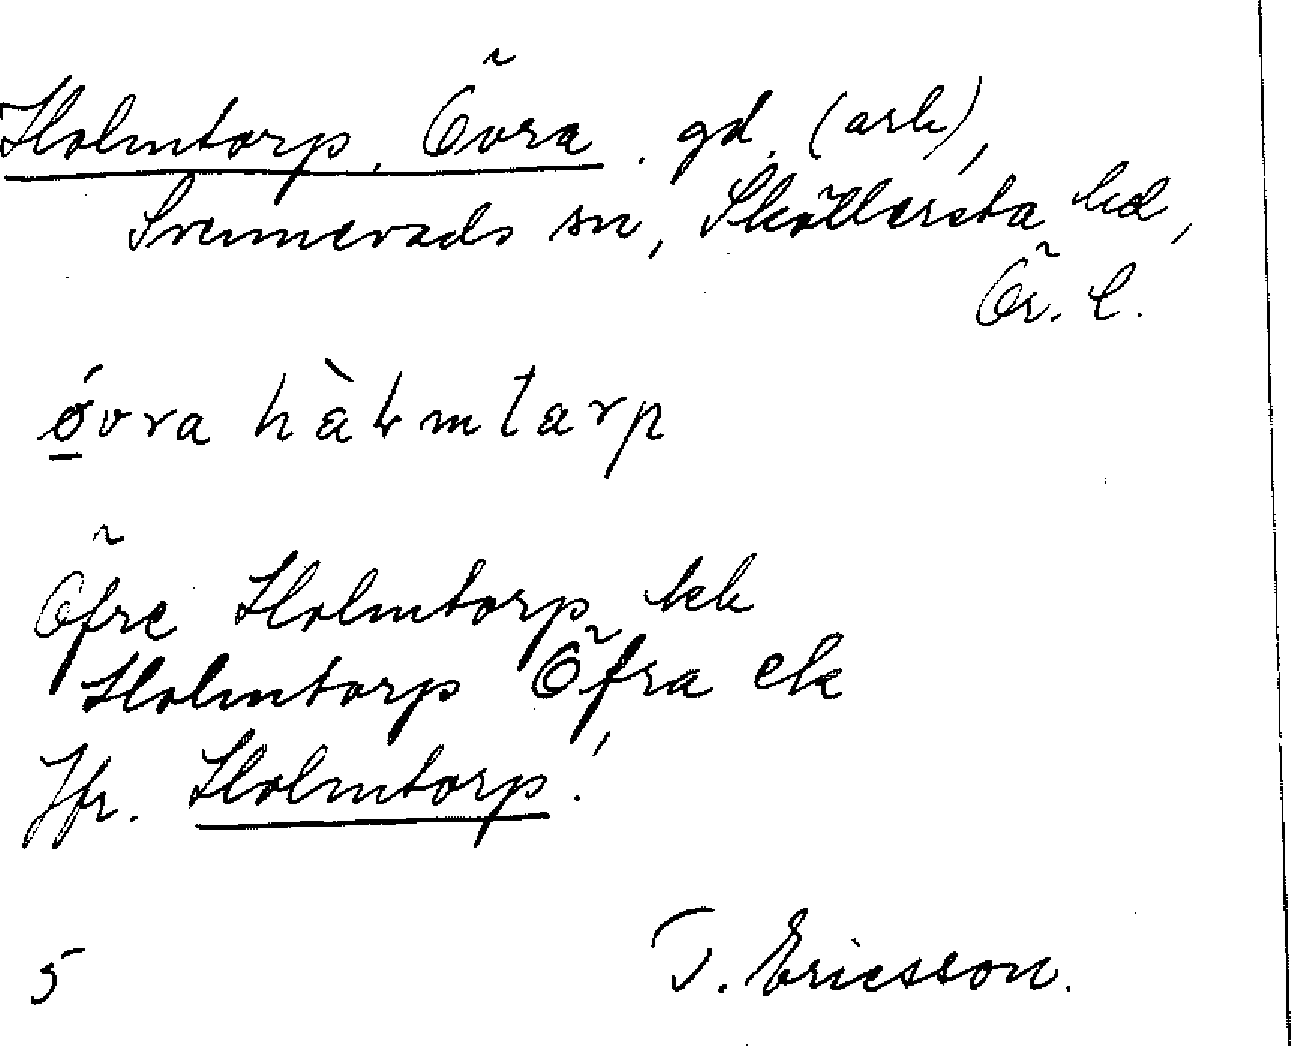 Holmtorp, Övra, gd. (ark),
Svennevads sn, Sköllersta hd,
Ör. l.
ǿ̱vra hàɬmtarp
Öfre Holmtorp kk
Holmtorp Öfra ek
Jfr. Holmtorp!
5 T. Ericsson.